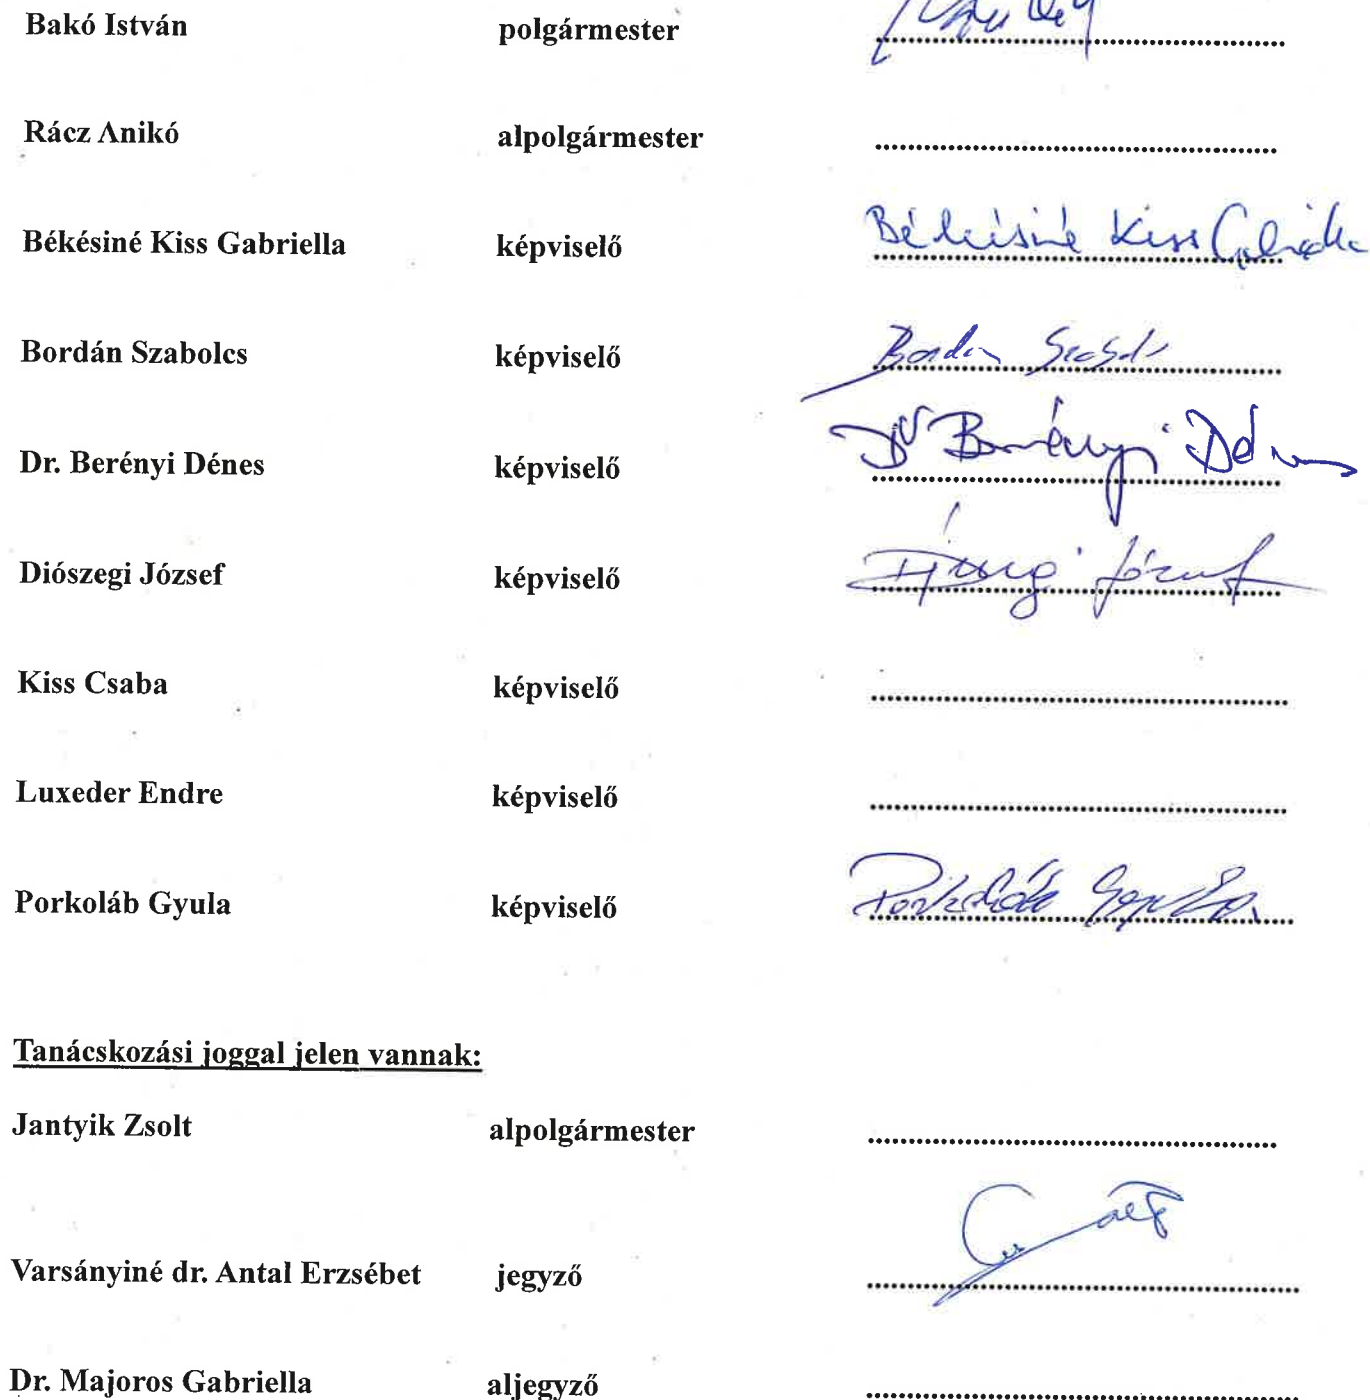 Bakó István polgármester
Rácz Anikó alpolgármester ........................................
Békésiné Kiss Gabriella képviselő Békésiné Kiss Gabriella
Bordán Szabolcs képviselő Bordán Szabolcs
Dr. Berényi Dénes képviselő Dr Berényi Dénes
Diószegi József képviselő József
Kiss Csaba képviselő ........................................
Luxeder Endre képviselő ........................................
Porkoláb Gyula képviselő Porkoláb Gyula
Tanácskozási joggal jelen vannak:
Jantyik Zsolt alpolgármester ........................................
Varsányiné dr. Antal Erzsébet jegyző
Dr. Majoros Gabriella aljegyző ........................................